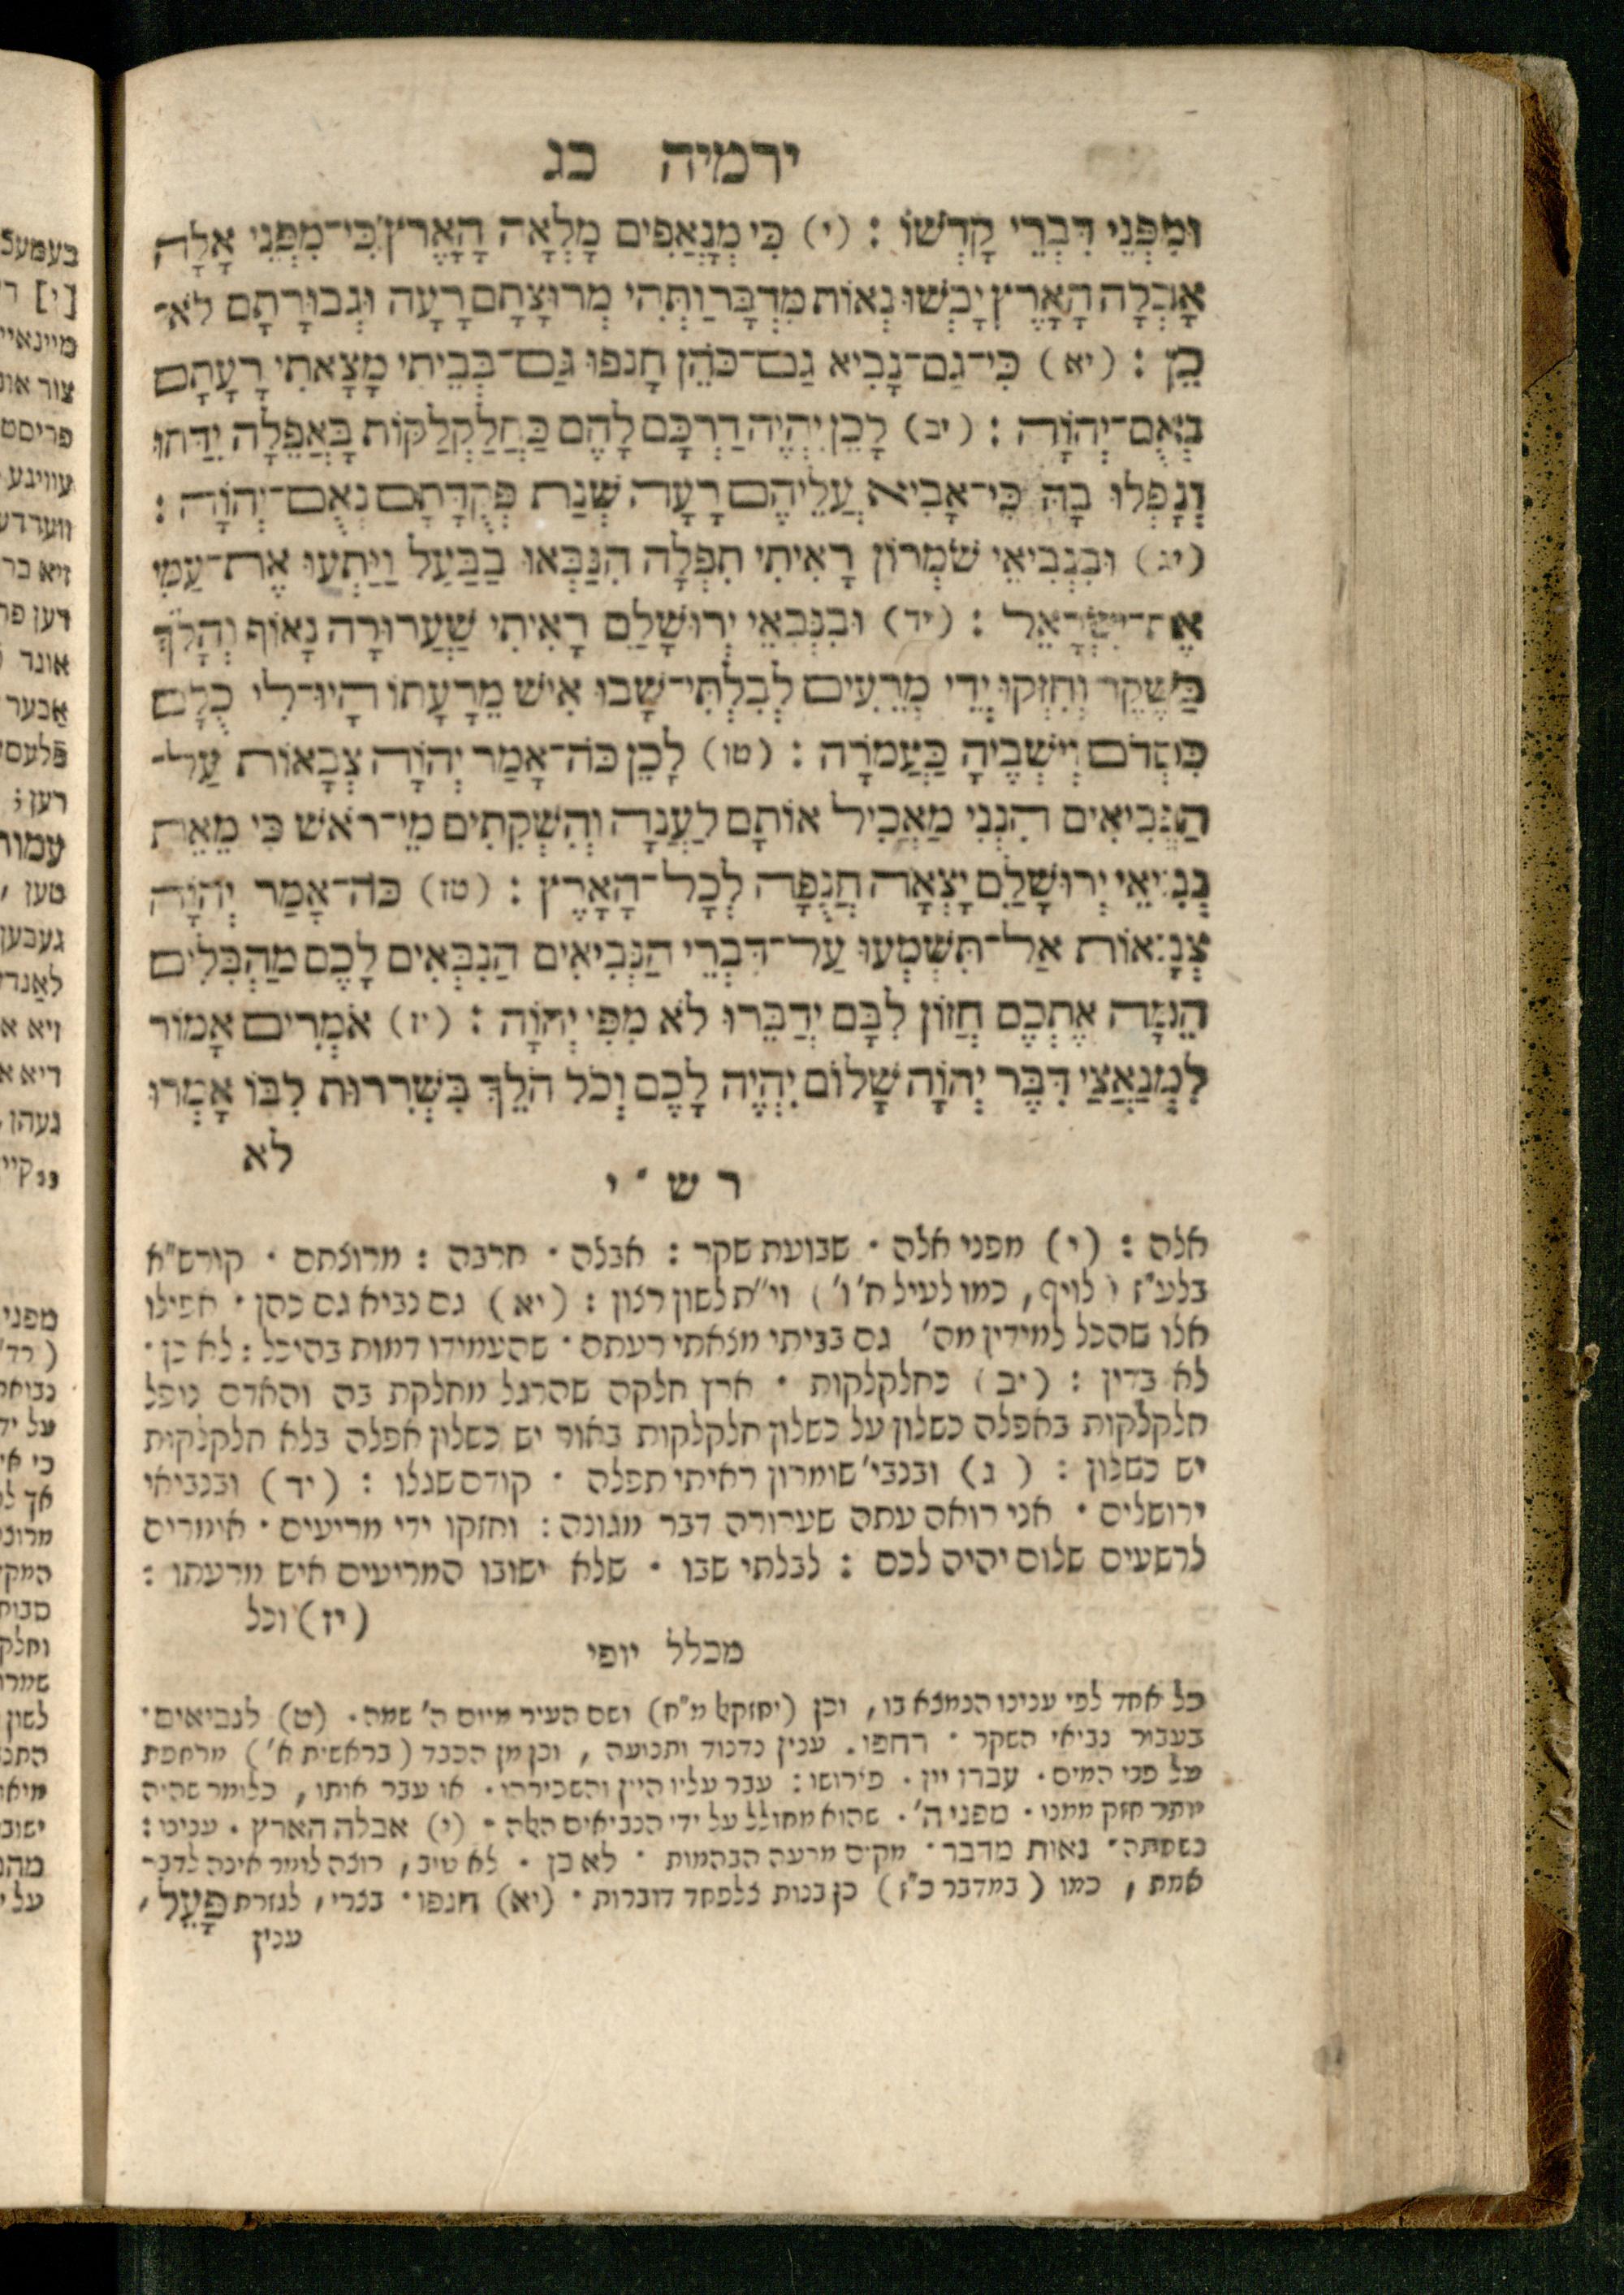 ירמיה כג
וּמִפְּנֵי דִּבְרֵי קָדְשׁוֹ : (י) כִּי מְנָאֲפִים מָלְאָה הָאָרֶץ כִּי־מִפְּנֵי אָלָה
אָבְלָה הָאָרֶץ יָבְשׁוּ נְאוֹת מִדְבָּר וַתְּהִי מְרוּצָתָם רָעָה וּגְבוּרָתָם לֹא־
כֵן : (יא) כִּי־גַם־נָבִיא גַם־כֹּהֵן חָנֵפוּ גַּם־בְּבֵיתִי מָצָאתִי רָעָתָם
נְאֻם־יְהוָֹה : (יב) לָכֵן יִהְיֶה דַרְכָּם לָהֶם כַּחֲלַקְלַקּוֹת בָּאֲפֵלָה יִדַּחוּ
וְנָפְלוּ בָהּ כִּי־אָבִיא עֲלֵיהֶם רָעָה שְׁנַת פְּקֻדָּתָם נְאֻם־יְהוָֹה :
(יג) וּבִנְבִיאֵי שֹׁמְרוֹן רָאִיתִי תִפְלָה הִנַּבְּאוּ בַבַּעַל וַיַּתְעוּ אֶת־עַמִּי
אֶת־יִשְׂרָאֵל : (יד) וּבִנְבִאֵי יְרוּשָׁלִַם רָאִיתִי שַׁעֲרוּרָה נָאוֹף וְהָלֹךְ
בַּשֶּׁקֶר וְחִזְּקוּ יְדֵי מְרֵעִים לְבִלְתִּי־שָׁבוּ אִישׁ מֵרָעָתוֹ הָיוּ־לִי כֻלָּם
כִּסְדֹם וְיֹשְׁבֶיהָ כַּעֲמֹרָה : (טו) לָכֵן כֹּה־אָמַר יְהוָֹה צְבָאוֹת עַל־
הַנְּבִיאִים הִנְנִי מַאֲכִיל אוֹתָם לַעֲנָה וְהִשְׁקִתִים מֵי־רֹאשׁ כִּי מֵאֵת
נְבִיאֵי יְרוּשָׁלִַם יָצְאָה חֲנֻפָּה לְכָל־הָאָרֶץ : (טז) כֹּה־אָמַר יְהוָֹה
צְבָאוֹת אַל־תִּשְׁמְעוּ עַל־דִּבְרֵי הַנְּבִיאִים הַנִּבְּאִים לָכֶם מַהְבִּלִים
הֵמָּה אֶתְכֶם חֲזוֹן לִבָּם יְדַבֵּרוּ לֹא מִפִּי יְהוָֹה : (יז) אֹמְרִים אָמוֹר
לִמְנַאֲצַי דִּבֶּר יְהוָֹה שָׁלוֹם יִהְיֶה לָכֶם וְכֹל הֹלֵךְ בִּשְׁרִרוּת לִבּוֹ אָמְרוּ
לא
רש״י
אלה : (י) מפני אלה · שבועת שקר : אבלה · חרבה : מרוצתם · קורש"א
בלע"ז (לויף, כמו לעיל ח' ו') וי"ת לשון רצון : (יא) גם נביא גם כהן · אפילו
אלו שהכל למידין מה' גם בביתי מצאתי רעתם · שהעמידו דמות בהיכל : לא כן ·
לא בדין : (יב) כחלקלקות · ארץ חלקה שהרגל מחלקת בה והאדם נופל
חלקלקות באפלה כשלון על כשלון חלקלקות באור יש כשלון אפלה בלא חלקלקות
יש כשלון : (ג) ובנבי' שומרון ראיתי תפלה · קודם שגלו : (יד) ובנביאי
ירושלים · אני רואה עתה שערורה דבר מגונה : וחזקו ידי מריעים · אומרים
לרשעים שלום יהיה לכם : לבלתי שבו · שלא ישובו המריעים איש מרעתו :
(יז) וכל
מכלל יופי
כל אחד לפי ענינו הנמצא בו, וכן (יחזקל מ"ח) ושם העיר מיום ה' שמה. (ט) לנביאים·
בעבור נביאי השקר · רחפו. ענין נדנוד ותנועה, וכן מן הכבד (בראשית א') מרחפת
על פני המים. עברו יין. פירושו: עבר עליו היין והשכירהו. או עבר אותו, כלומר שהיה
יותר חזק ממנו. מפני ה'. שהוא מחולל על ידי הנביאים האלה · (י) אבלה הארץ. ענינו:
נשמתה· נאות מדבר· מקים מרעה הבהמות · לא כן · לא טוב, רוצה לומר אינה לדבר
אמת, כמו (במדבר כ"ז) כן בנות צלפחד דוברות · (יא) חנפו· בצרי, לגזרת פָּעֵל,
ענין